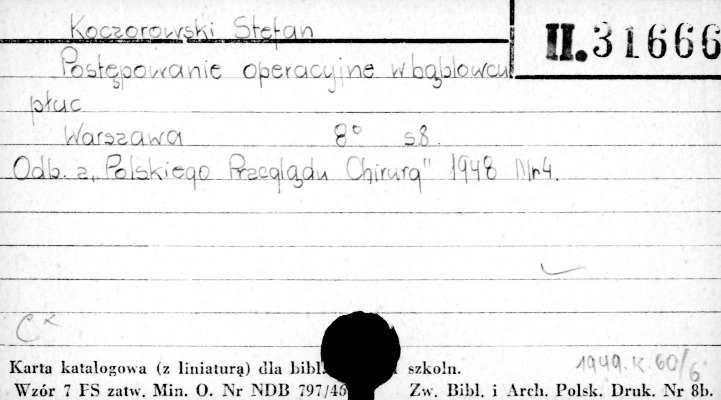 Koczorowski Stefan
II. 31666
Postępowanie operacyjne w bąblowcu
płuc
Warszawa 8° s 8.
Odb. z „Polskiego Przeglądu Chirurg" 1948 Nr 4.
C x
1949. K. 60/6
Karta katalogowa (z liniaturą) dla bibl. szkoln.
Wzór 7 PS zatw. Min. O. Nr NDB 797/46 Zw. Bibl. i Arch. Polsk. Druk. Nr 8b.